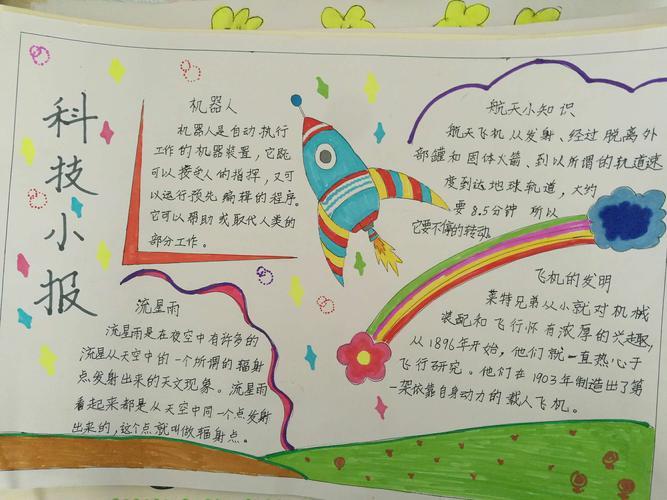 科技小报
机器人
机器人是自动执行
工作的机器装置，它既
可以接受人的指挥，又可
以运行预先编辑的程序。
它可以帮助或取代人类的
部分工作。
航天小知识
航天飞机从发射、经过脱离外
部罐和固体火箭、到以所谓的轨道速
度到达地球轨道，大约
要8.5分钟 所以
它要不停的转动。
流星雨
流星雨是在夜空中有许多的
流星从天空中的一个所谓的辐射
点发射出来的天文现象。流星雨
看起来都是从天空中同一个点发射
出来的，这个点就叫做辐射点。
飞机的发明
莱特兄弟从小就对机械
装配和飞行怀有浓厚的兴趣，
从1896年开始，他们就一直热心于
飞行研究。他们在1903年制造出了第
一架依靠自身动力的载人飞机。